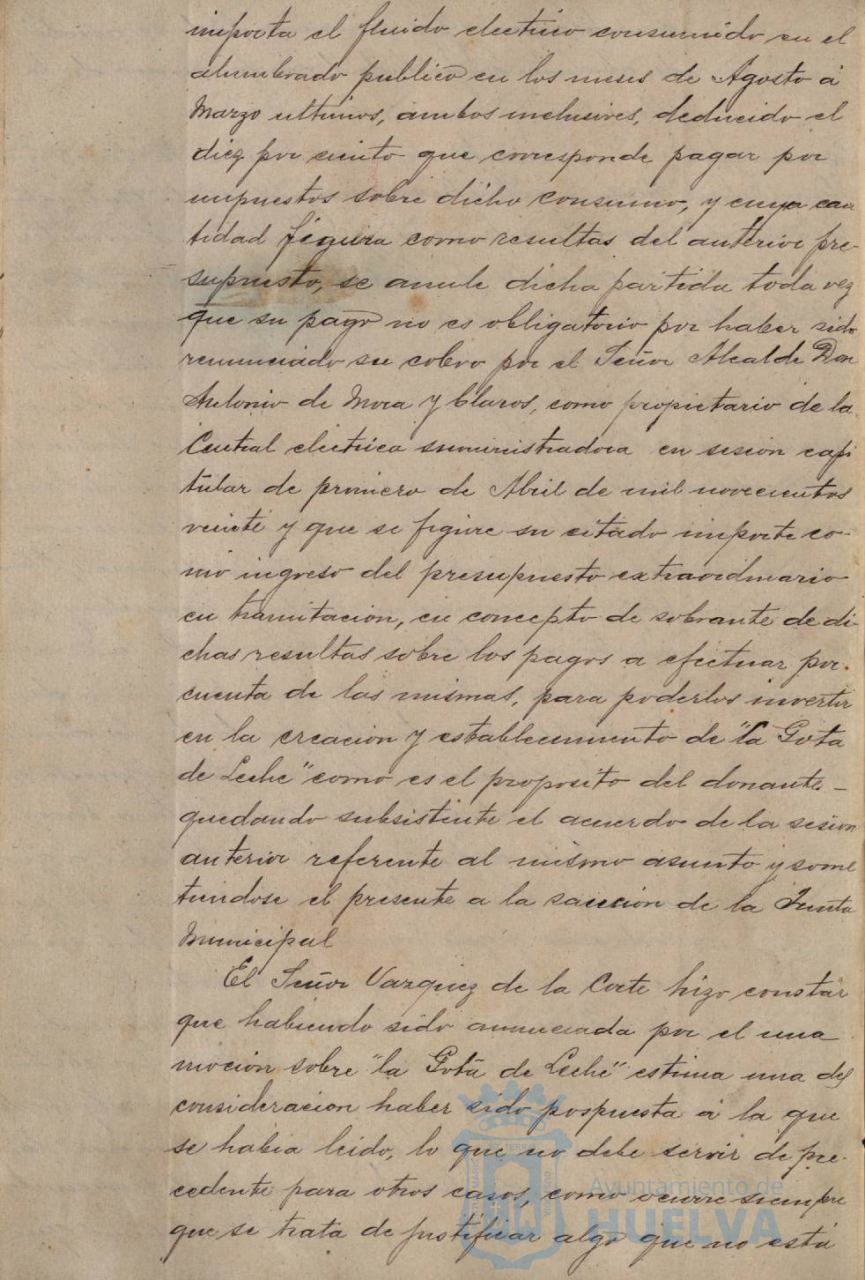 importa el fluido electrico consumido en el
alumbrado publico en los meses de Agosto á
Marzo ultimos, ambos inclusives, deducido el
diez por ciento que corresponde pagar por
impuestos sobre dicho consumo, y cuya can
tidad figura como resultas del anterior pre-
supuesto, se anule dicha partida toda vez
que su pago no es obligatorio por haber sido
renunciado su cobro por el Señor Alcalde Don
Antonio de Mora y Claros, como propietario de la
Central electrica suministradora en sesion capi
tular de primero de Abril de mil novecientos
veinte y que se figure su citado importe co-
mo ingreso del presupuesto extraordinario
en tramitacion, en concepto de sobrante de di-
chas resultas sobre los pagos a efectuar por
cuenta de las mismas, para poderlos invertir
en la creacion y establecimiento de "la Gota
de Leche" como es el proposito del donante-
quedando subsistente el acuerdo de la sesion
anterior referente al mismo asunto y some
tiendose el presente a la sancion de la Junta
Municipal
El Señor Vazquez de la Corte hizo constar
que habiendo sido anunciada por el una
mocion sobre "la Gota de Leche" estima una des
consideracion haber sido pospuesta á la que
se habia leido, lo que no debe servir de pre-
cedente para otros casos, como ocurre siempre
que se trata de justificar algo que no está
Ayuntamiento de
HUELVA